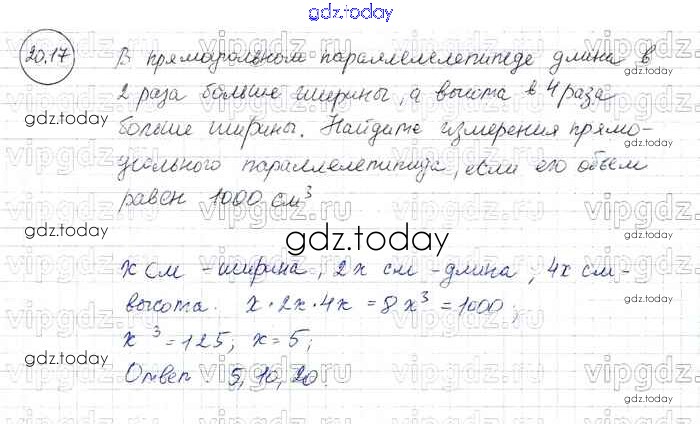 gdz.today
20.17 В прямоугольном параллелепипеде длина в
2 раза больше ширины, а высота в 4 раза
больше ширины. Найдите измерения прямо-
угольного параллелепипеда, если его объем
равен 1000 см³
gdz.today
x см - ширина, 2x см - длина, 4x см -
высота. x · 2x · 4x = 8x³ = 1000;
x³ = 125; x = 5;
Ответ: 5, 10, 20.